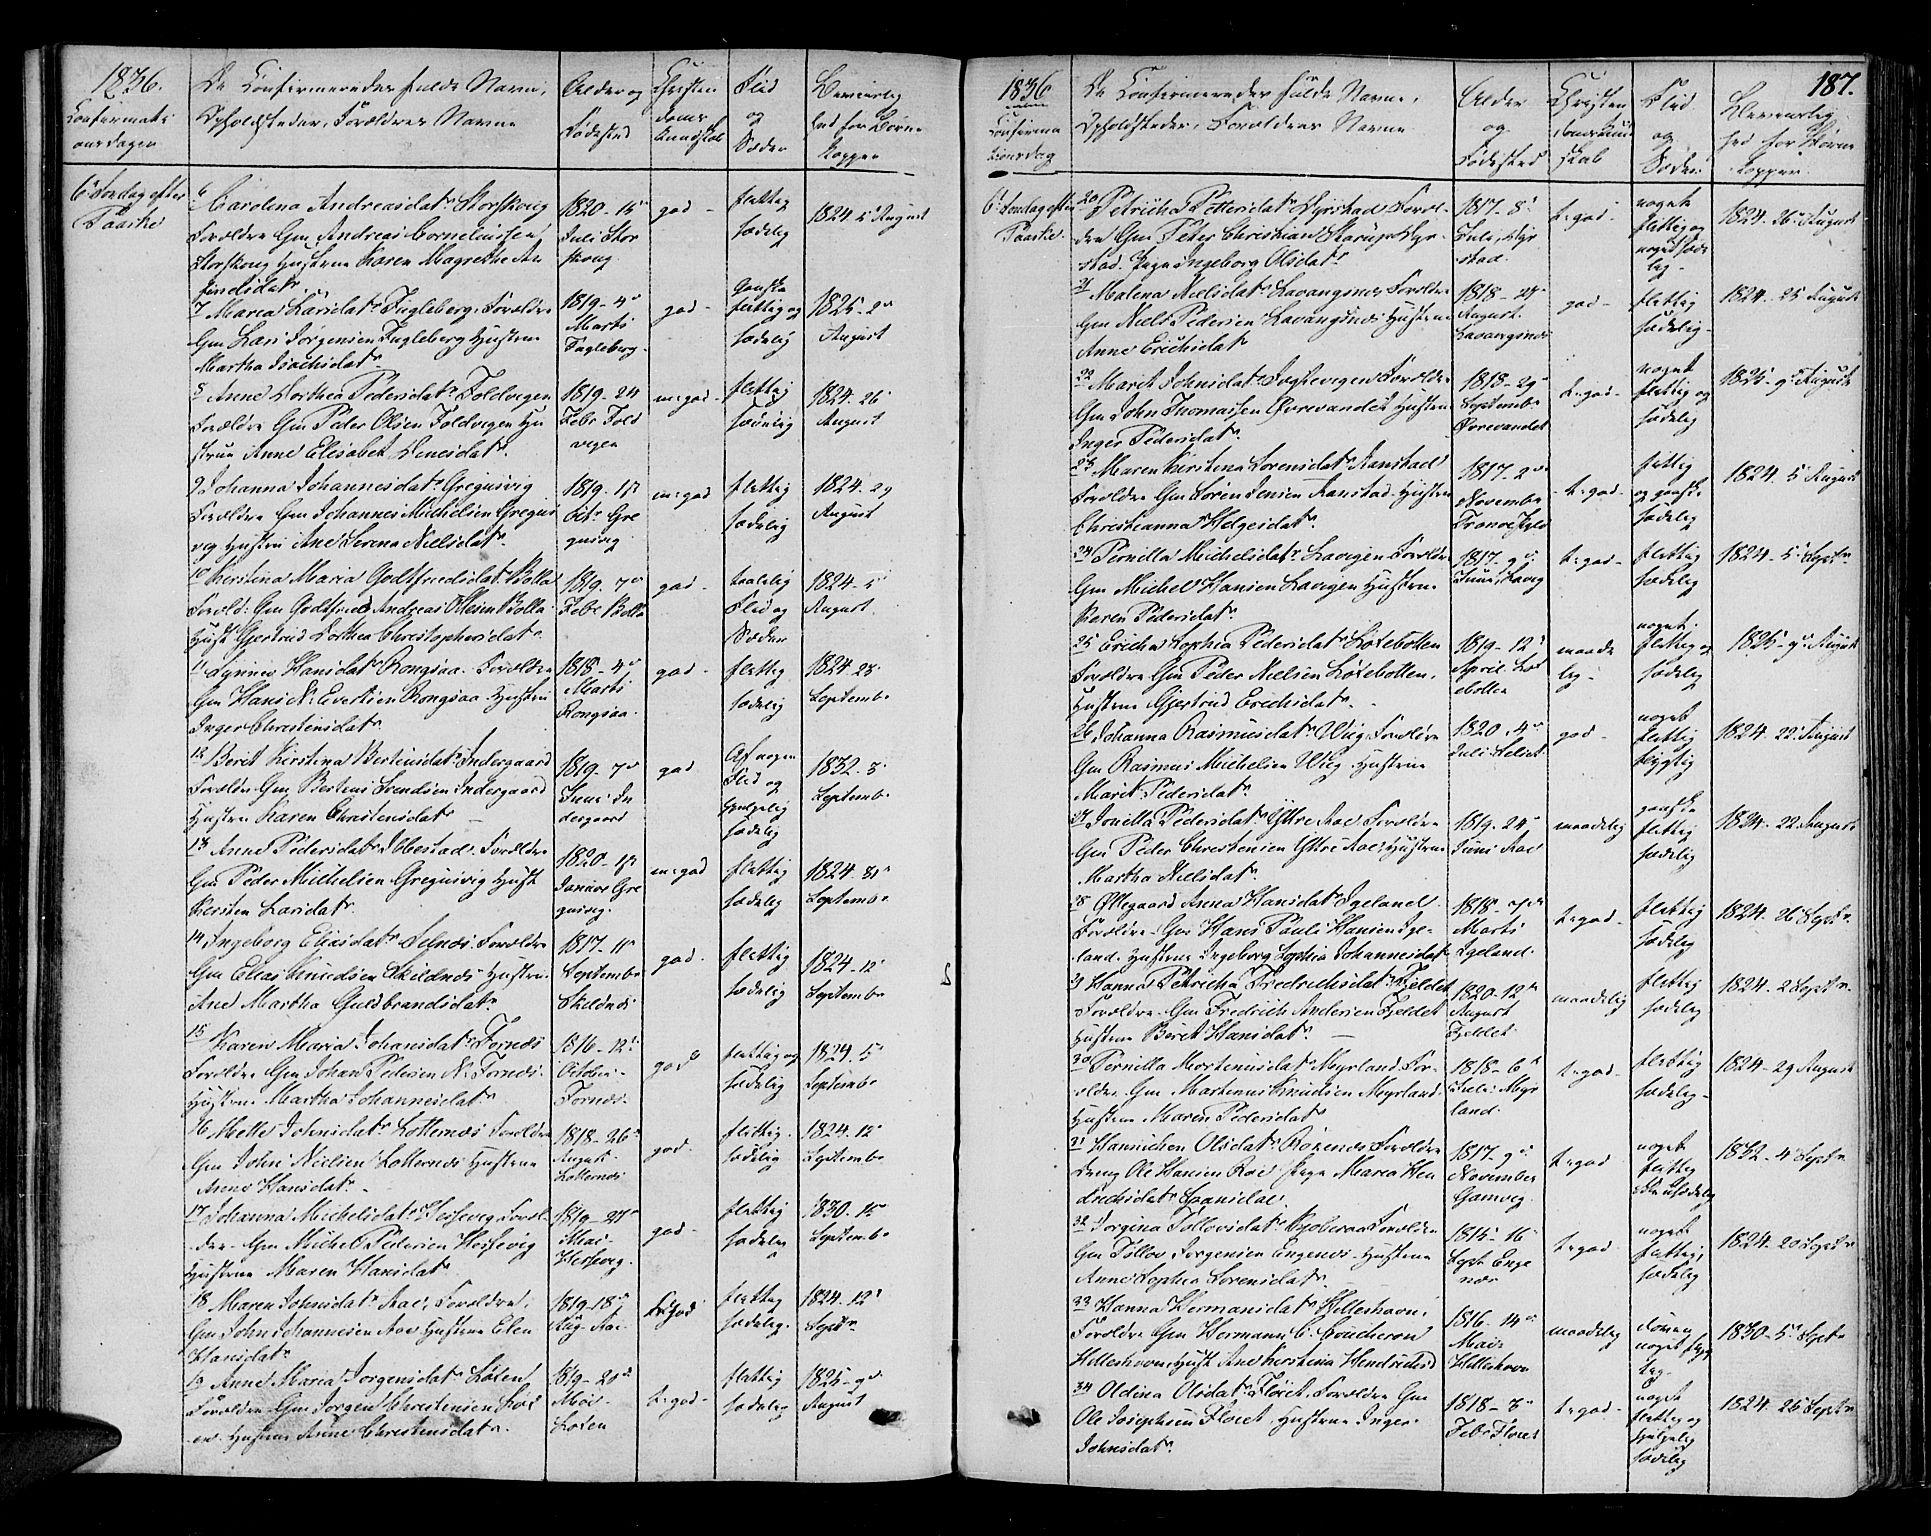 1836.
Confirmati-
onsdagen
De Confirmeredes fulde Navne,
Opholdsteder, Forældres Navne
Alder og
Fødested
Christen
doms
Kundskab
Flid
og
Sæder
hed for Børne
Kopper
6 Søndag efter
Paaske
6 Carolina Andreasdatr Storskoug
Forældre Gm Andreas Corneliussen
Storskoug Hustrue Karen Magrethe
1820 - 15
Juli Stor
skoug.
god -
flittig
sædelig
1824 5 August
7 Maria Larsdatr Fugleberg, Forældre
Gm Lars Jørgensen Fugleberg Hustrue
Martha Isachsdatr
1819 - 4de
Marts
Fugleberg.
god -
Ganske
flittig og
sædelig
1825 - 2
August
8 Anne Dorthea Pedersdatr Foldvigen
Forældre Gm Peder Olsen Foldvigen Hu
strue Anne Elisabet Denesdatr.
1819 - 24
Febr Fold
vigen
m: god -
flittig
sædelig
1824. 26
August
9 Johanna Johannesdatr Gregusvig
Forældre Gm Johannes Michelsen Gregus
vig Hustrue Ane Serena Nielsdatr.
1819 - 17
Octr Gre
gusvig
m: god
flittig
sædelig
1824. 29
August
10 Kirstina Maria Godtfriedsdatr Bolla
Foræld: Gm Godtfried Andreas Ollesen Bolla
Hust Gjertrud Dorthea Christophersdatr
1819. 7de
Febr Bolla
god -
taalelig
Flid og
Sæder
1824 - 5
August.
11 Hansdatr Rongsaa. Forældre
Gm Hans N: Evertsen Rongsaa Hustrue
Inger Christensdatr.
1818 - 4de
Marts
Rongsaa.
god -
flittig
sædelig
1824 28
Septembr
12 Berit Kirstina Bertensdatr Indergaard
Forældre Gm Bertens Svendsen Indergaard
Hustrue Karen Christensdatr
1819 - 7de
Juni In
dergaard
god
Af nogen
Flid og
sædelig
1832. 3
Septembr
13 Anne Pedersdatr Ibbestad. Forældre
Gm Peder Michelsen Gregusvig Hust
Kirsten Larsdatr.
1820 - 17
Januar Gre
gusvig.
m: god
flittig
sædelig
1824
Septembr
14 Ingeborg Eliasdatr Selnæs. Forældre
Gm Elias Knudsen Skildnes Hustrue
Ane Martha Guldbrandsdatr.
1817 - 11
Septembr
Skildnes
god -
flittig
sædelig
1824 - 12
Septembr
15 Karen Maria Johansdatr Fornes
Forældre Gm Johan Pedersen N: Fornes.
Hustrue Martha Johannesdatr
1816 - 12
October
Fornes.
god
flittig og
sædelig
1824. 5
Septembr
16 Mette Johnsdatr Lotternes Forældre
Gm John Nielsen Lotternes Hustrue
Anne Hansdatr. -
1818 - 26
August
Lotternes
god -
flittig.
sædelig
1824. 12
Septembr
17 Johanna Michelsdatr Hessevig Foræl-
dre. Gm Michel Pedersen Hessevig
Hustrue Maren Hansdatr
1819 - 27
Mai
Hessevig.
god -
flittig
sædelig
1830. 15
Septembr
18 Maren Johnsdatr Aae, Forældre,
Gm John Johannesen Aae Hustrue Elen
Hansdatr
1819 - 18
Aug. Aae
t: god
flittig
sædelig.
1824. 12
Septr
19 Anne Maria Jørgensdatr Løten
Forældre. Gm Jørgen Christensen Løt
en. Hustrue Anne Christensdatr.
Mai
Løten
t: god -
flittig
sædelig
1825 - 9
August
1836
Confirma
tionsdag
De Confirmeredes fulde Navne,
Opholdsteder, Forældres Navne
Alder
og
Fødested
Christen
skab
Flid
og
Sæder
187.
hed for Børne
kopper.
6 Søndag efter
Paaske.
20 Petricha Pettersdatr Dyrstad Foræl-
dre Gm Peter Christian Skarup Dyr-
stad. Pige Ingeborg Olsdatr
1817 - 8
Juli, Dyr
stad.
t: god -
noget
flittig og
lig -
1824. 26 August
21 Malena Nielsdatr Lavangsnes Forældre
Gm Niels Pedersen Lavangsnes Hustrue
Anne Erichsdatr
August
Lavangsnes
god -
flittig
sædelig.
1824 - 25 August
22 Marit Johnsdatr Forældre
Gm John Thomassen Øvrevandet Hustrue
Inger Pedersdatr.
1818 - 29
Septembr
Øvrevandet
t: god -
noget
flittig og
sædelig
1825 - 9 August
23 Maren Kirstina Sørensdatr Aanstad
Forældre Gm Søren Jensen Aanstad. Hustrue
Christianna Helgesdatr.
1817 - 2
November
t: god -
flittig
og ganske
sædelig
1824. 5 August
24 Pernilla Michelsdatr Lavigen Forældre
Gm Michel Hansen Lavigen Hustrue
Karen Pedersdatr.
1817 - 9
Juni, Lavig
t: god -
flittig
sædelig
1824 - 5 Septr
25 Ericha Sophia Pedersdatr Løtebotten
Forældre Gm Peder Nielsen Løtebotten,
Hustrue Gjertrud Erichsdatr. -
1819 - 12
April. Løt
ebotten
maade
lig -
noget
flittig og
sædelig
1825 - 9 August
26 Johanna Rasmusdatr Wiig. Forældre
Gm Rasmus Michelsen Wiig - Hustrue
Marit Pedersdatr.
1820 - 4
god -
noget
flittig
1824. 22 August
27 Pedersdatr Yttre Aae Forældre
Gm Peder Christensen Yttre Aae. Hustrue
Martha Nielsdatr.
1819 - 24
Juni Aae
maadelig
ganske
flittig
sædelig
22 August
28 Øllegaard Anna Hansdatr Igeland
Forældre. Gm Hans Pauls Hansen Ige-
land. Hustrue Ingeborg Sophia Johannesdatr
1818 - 7
Marts
Igeland.
t: god -
flittig
sædelig
1824. 26 Septr
29 Hanna Petricha Fredrichsdatr Fjeldet
Forældre. Gm Fredrich Andersen Fjeldet
Hustrue Beret Hansdatr. -
1820 - 12
August
Fjeldet
maadelig
flittig
sædelig
1824. 2 Septr
30 Pernilla Mortensdatr Myrland For-
ældre. Gm Martenus Knudsen Myrland.
Hustrue Maren Pedersdatr.
1818 - 6
Juli Myr
land.
t: god -
flittig
sædelig -
1824 - 29 August
31 Hannichen Olsdatr Rørenes Forældre
Dreng Ole Hansen Roe Pige Maria Hen
drichsdatr Spansdal
1817 - 9
November
Gamvig.
t: god
noget
flittig
sædelig
1832 - 4 Septr
32 Jorgina Tollevsdatr Forældre
Gm Tollov Jorgensen Engenes. Hustrue
Anne Sophia Sørensdatr.
1815 - 16
Sept Enge
nes
t: god -
noget
flittig,
sædelig
1824 - 20 Septr
33 Hanna Hermansdatr Helleshavn,
Forældre Gm Hermann C: Boucheron
Helleshavn Hust Ane Kirstina Hendrichsd
1816 - 14
Mai
Helleshavn
maadelig
doven
noget
lig -
1830 - 5 Septr
34 Oldina Olsdatr Fløtet, Forældre Gm
Ole Josephsen Fløtet, Hustrue Inger
Johnsdatr
1818 - 3
Febr Fløtet
t: god -
noget
flittig og
sædelig
1824. 26 Septr